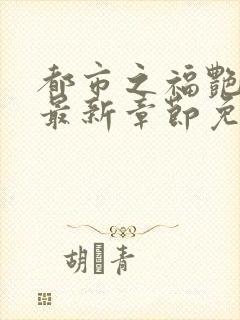 都市之福艳
最新章节免
胡 青